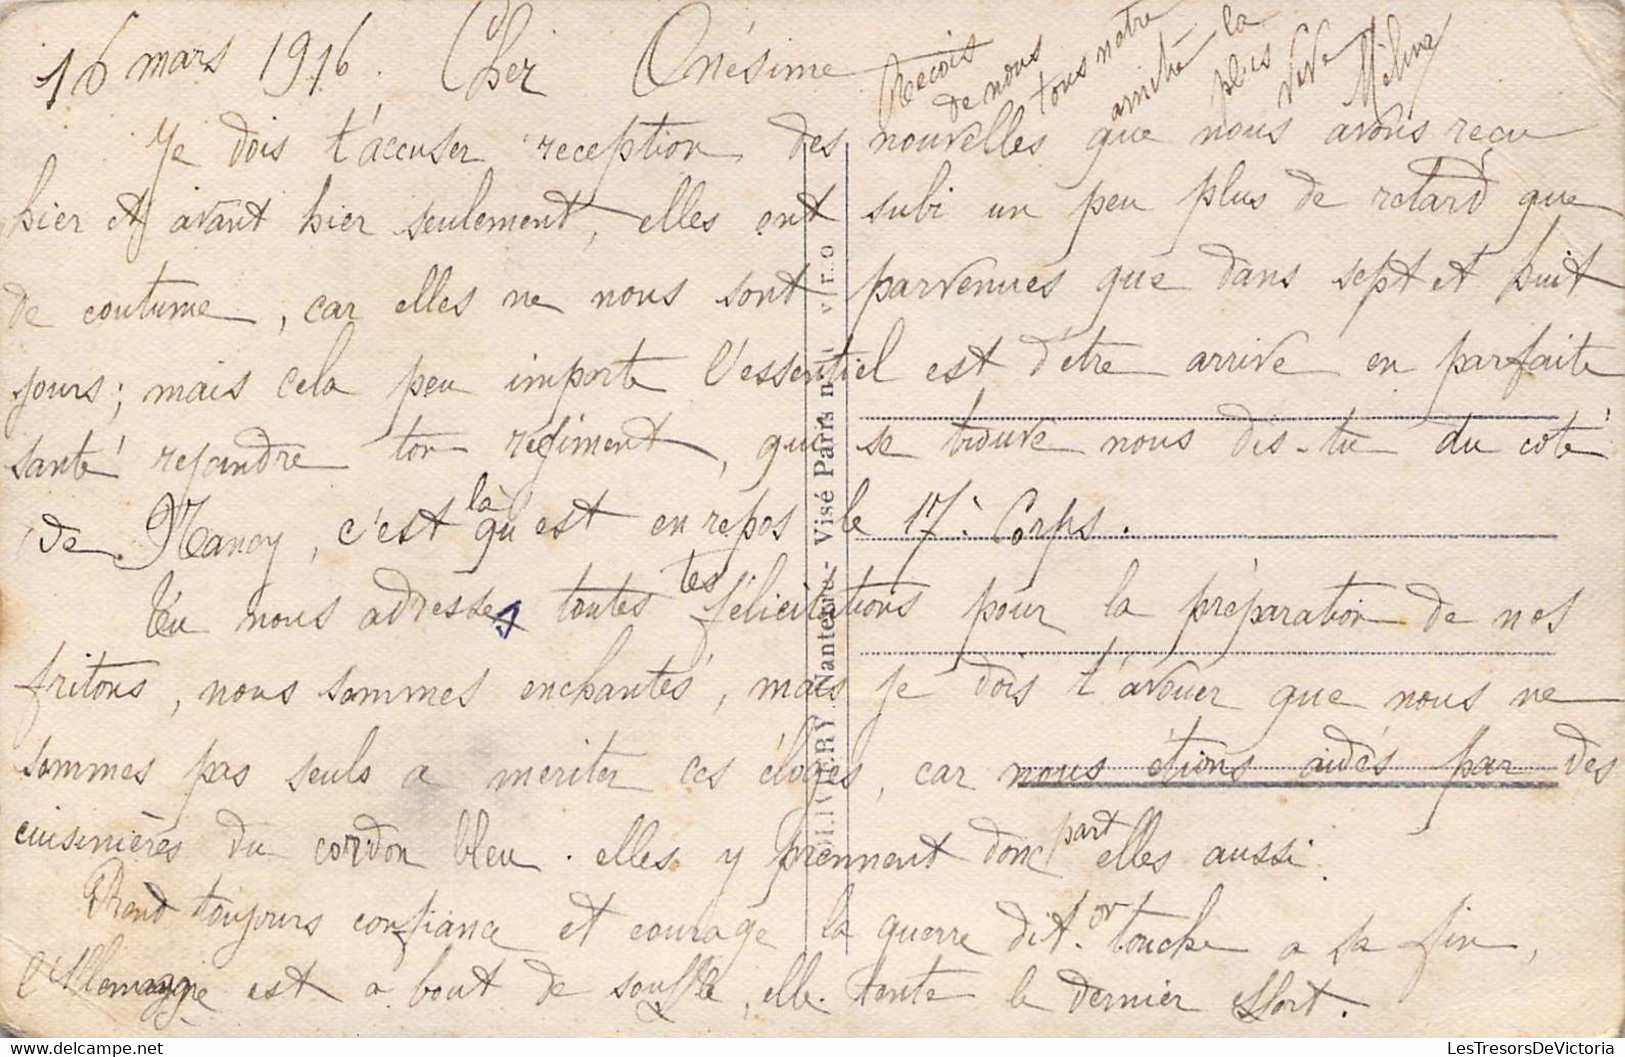 16 mars 1916. Cher Onésime
Reçois
de nous
tous notre
amitié la
plus
vive
Mélina
Je dois t'accuser reception des nouvelles que nous avons reçu
hier et avant hier seulement, elles ont subi un peu plus de retard que
de coutume, car elles ne nous sont parvenues que dans sept et huit
jours; mais cela peu importe l'essentiel est d'être arrivé en parfaite
santé rejoindre ton regiment, qui se trouve nous dis-tu du coté
de Nancy, c'est là qu'est en repos le 17è Corps.
Tu nous adresses toutes tes félicitations pour la préparation de nos
fritons, nous sommes enchantés, mais je dois t'avouer que nous ne
sommes pas seuls a mériter ces éloges, car nous étions aidés par des
cuisinières du cordon bleu. elles y prennent donc part elles aussi.
Prend toujours confiance et courage la guerre dit-on touche a sa fin,
l'Allemagne est a bout de souffle, elle tente le dernier effort.
Nanterre - Visé Paris n°
LesTresorsDeVictoria